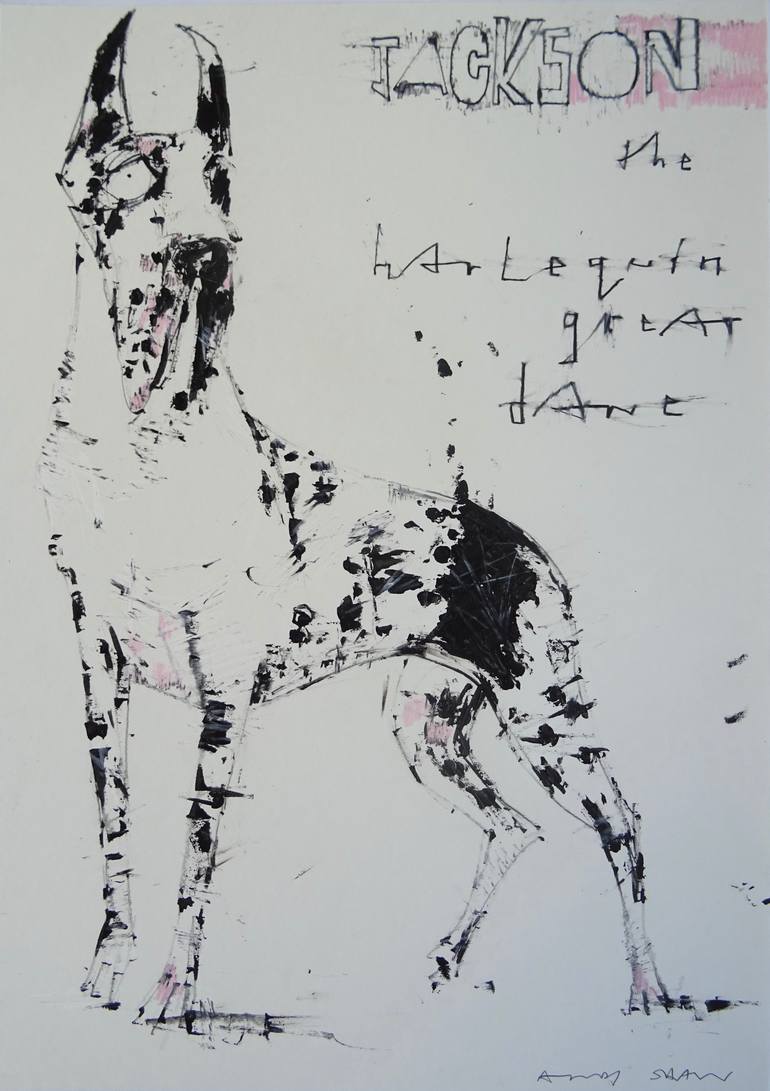 JACKSON
the
hArLequin
greAt
dAne
ANDY SHAW